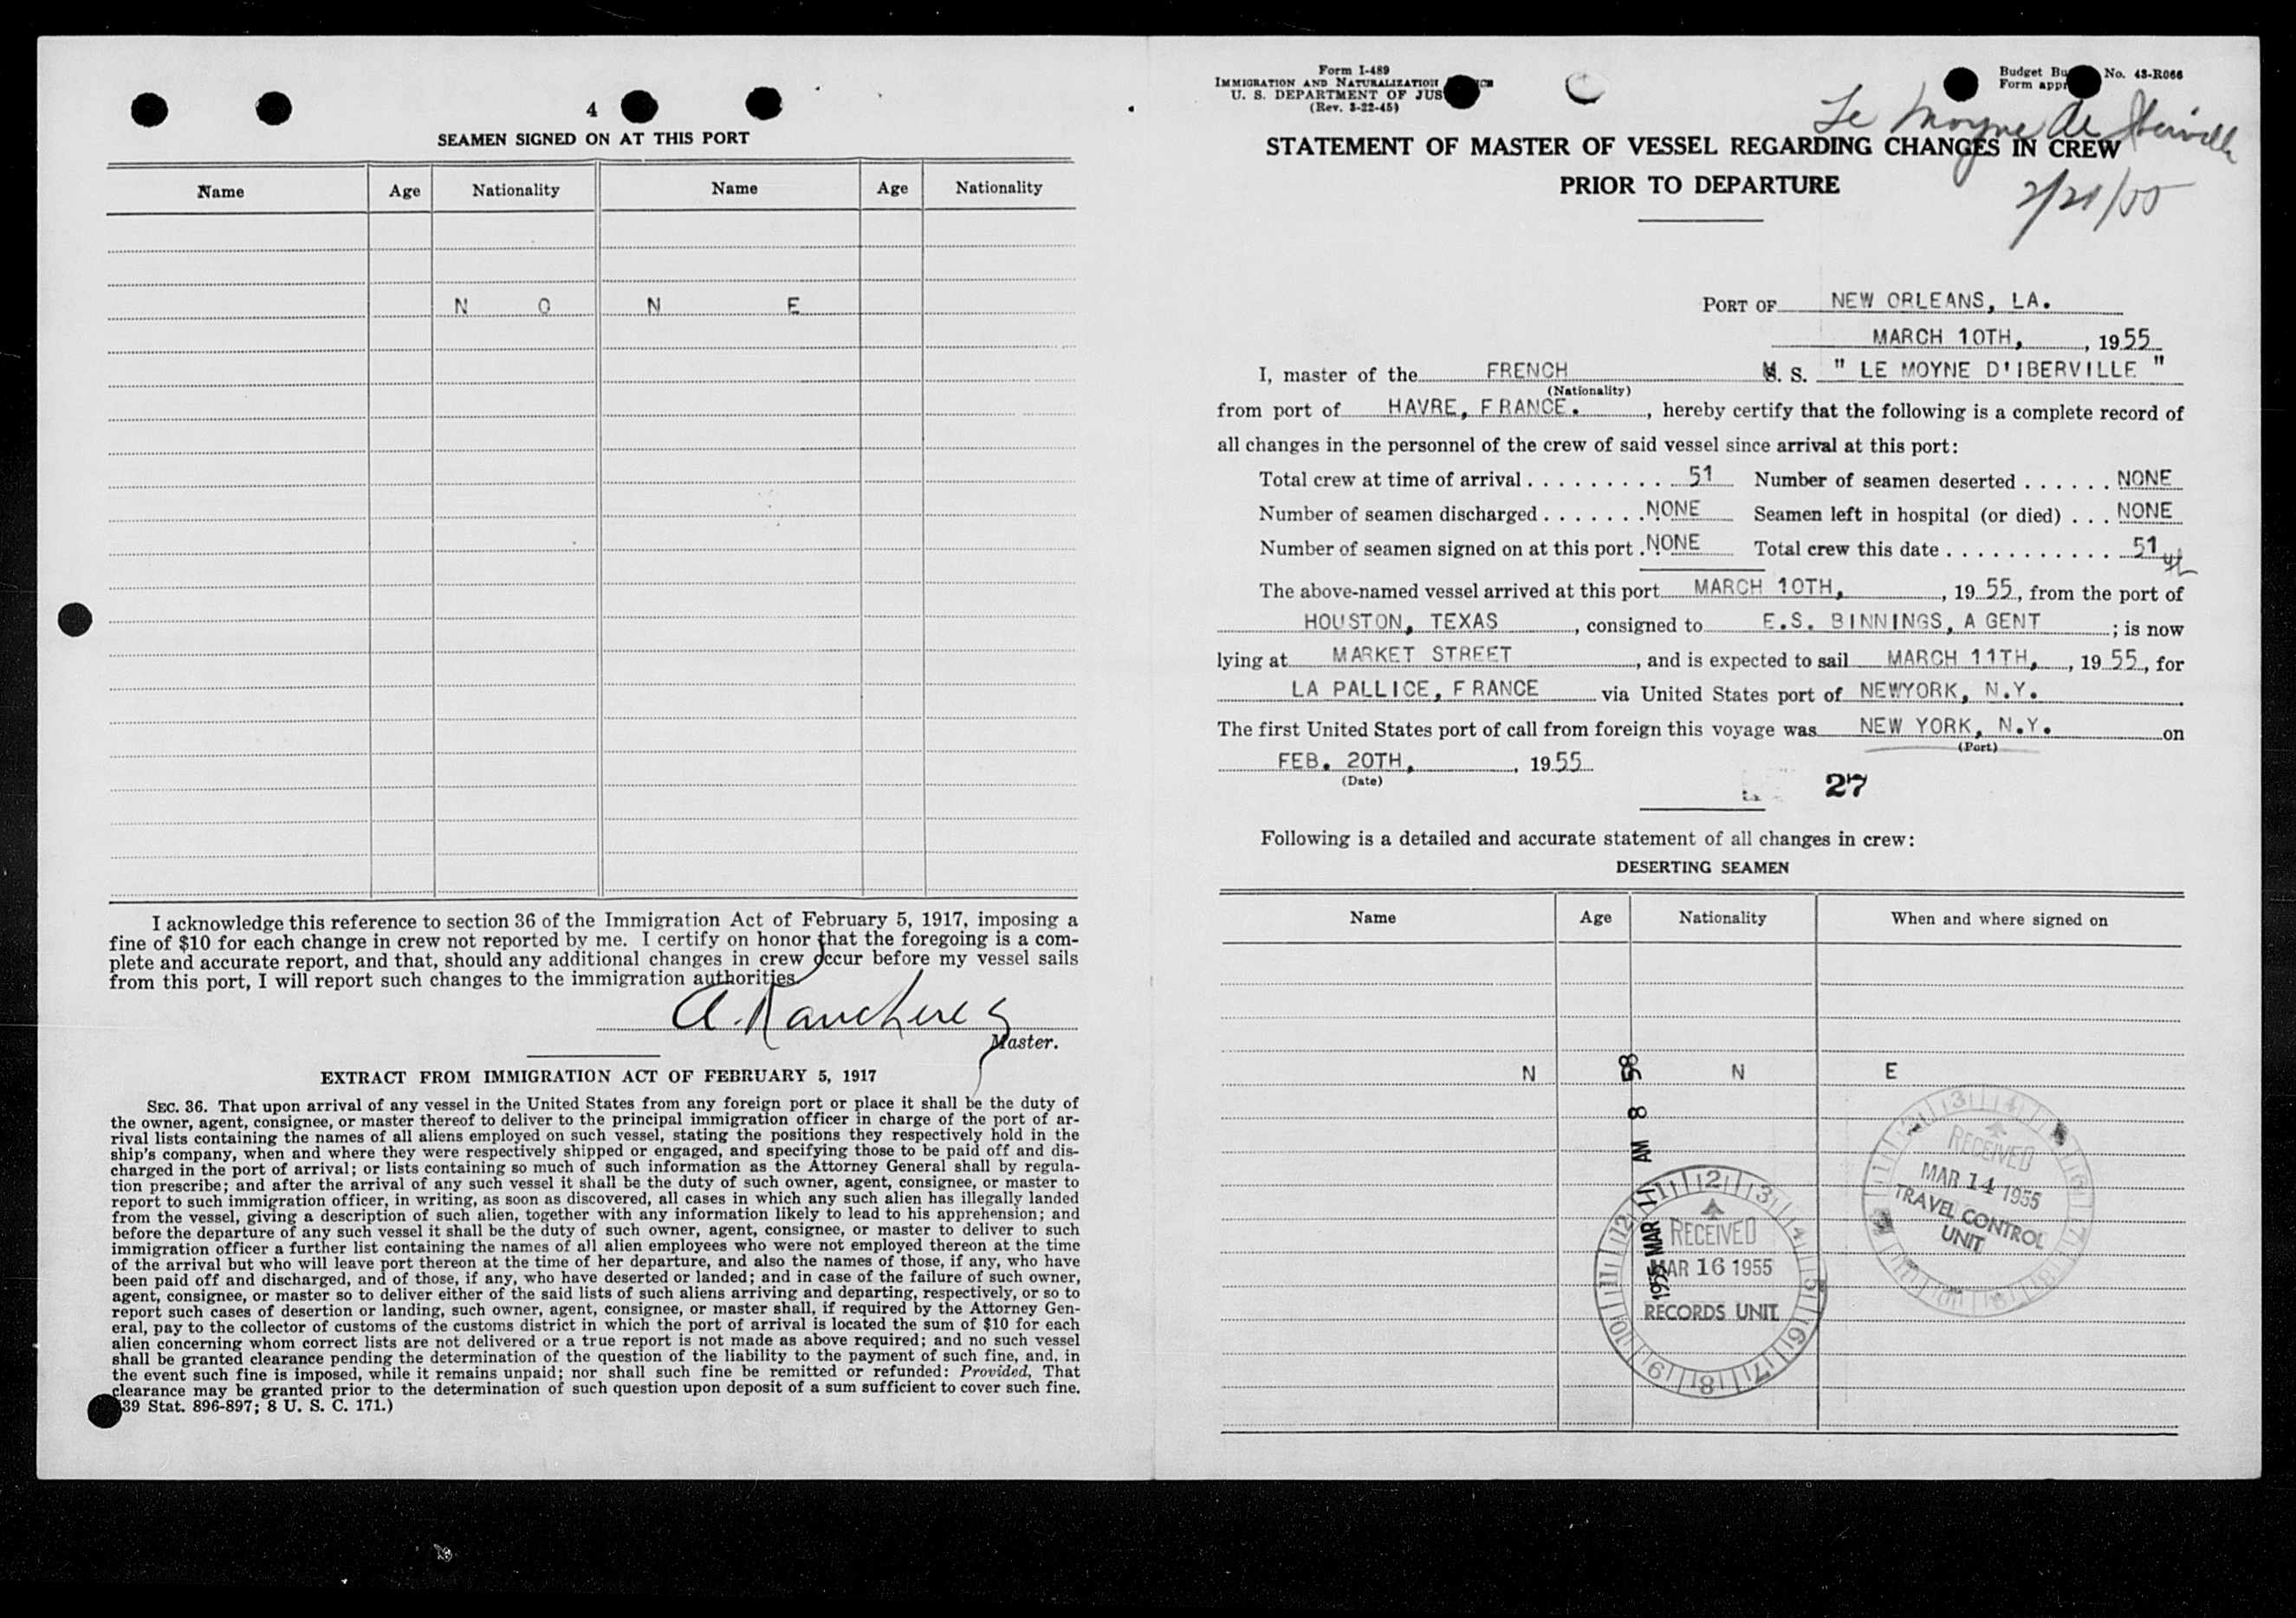 4
SEAMEN SIGNED ON AT THIS PORT
Name Age Nationality Name Age Nationality
N O N E
I acknowledge this reference to section 36 of the Immigration Act of February 5, 1917, imposing a
fine of $10 for each change in crew not reported by me. I certify on honor that the foregoing is a com-
plete and accurate report, and that, should any additional changes in crew occur before my vessel sails
from this port, I will report such changes to the immigration authorities.
A.
Master.
EXTRACT FROM IMMIGRATION ACT OF FEBRUARY 5, 1917
SEC. 36. That upon arrival of any vessel in the United States from any foreign port or place it shall be the duty of
the owner, agent, consignee, or master thereof to deliver to the principal immigration officer in charge of the port of ar-
rival lists containing the names of all aliens employed on such vessel, stating the positions they respectively hold in the
ship's company, when and where they were respectively shipped or engaged, and specifying those to be paid off and dis-
charged in the port of arrival; or lists containing so much of such information as the Attorney General shall by regula-
tion prescribe; and after the arrival of any such vessel it shall be the duty of such owner, agent, consignee, or master to
report to such immigration officer, in writing, as soon as discovered, all cases in which any such alien has illegally landed
from the vessel, giving a description of such alien, together with any information likely to lead to his apprehension; and
before the departure of any such vessel it shall be the duty of such owner, agent, consignee, or master to deliver to such
immigration officer a further list containing the names of all alien employees who were not employed thereon at the time
of the arrival but who will leave port thereon at the time of her departure, and also the names of those, if any, who have
been paid off and discharged, and of those, if any, who have deserted or landed; and in case of the failure of such owner,
agent, consignee, or master so to deliver either of the said lists of such aliens arriving and departing, respectively, or so to
report such cases of desertion or landing, such owner, agent, consignee, or master shall, if required by the Attorney Gen-
eral, pay to the collector of customs of the customs district in which the port of arrival is located the sum of $10 for each
alien concerning whom correct lists are not delivered or a true report is not made as above required; and no such vessel
shall be granted clearance pending the determination of the question of the liability to the payment of such fine, and, in
the event such fine is imposed, while it remains unpaid; nor shall such fine be remitted or refunded: Provided, That
clearance may be granted prior to the determination of such question upon deposit of a sum sufficient to cover such fine.
39 Stat. 896-897; 8 U. S. C. 171.)
Form I-489
IMMIGRATION AND NATURALIZATION
U. S. DEPARTMENT OF JUS
(Rev. 3-22-45)
Budget Bu No. 43-R066
Form app
Le Moyne de Iberville
STATEMENT OF MASTER OF VESSEL REGARDING CHANGES IN CREW
PRIOR TO DEPARTURE
2/21/55
PORT OF NEW ORLEANS, LA.
MARCH 10TH, , 1955
I, master of the FRENCH M. S. " LE MOYNE D'IBERVILLE "
(Nationality)
from port of HAVRE, FRANCE. , hereby certify that the following is a complete record of
all changes in the personnel of the crew of said vessel since arrival at this port:
Total crew at time of arrival . . . . . . . . . . 51 Number of seamen deserted . . . . . . NONE
Number of seamen discharged . . . . . . . NONE Seamen left in hospital (or died) . . . NONE
Number of seamen signed on at this port . NONE Total crew this date . . . . . . . . . . . . 51
The above-named vessel arrived at this port MARCH 10TH, , 19 55, from the port of
HOUSTON, TEXAS , consigned to E.S. BINNINGS, A GENT ; is now
lying at MARKET STREET , and is expected to sail MARCH 11TH, , 19 55, for
LA PALLICE, F RANCE via United States port of NEWYORK, N.Y.
The first United States port of call from foreign this voyage was NEW YORK, N.Y. on
(Port)
FEB. 20TH, , 19 55
(Date)
27
Following is a detailed and accurate statement of all changes in crew:
DESERTING SEAMEN
Name Age Nationality When and where signed on
N N E
1955 MAR 11 AM 8 58
RECEIVED
MAR 14 1955
TRAVEL CONTROL
UNIT
RECEIVED
MAR 16 1955
RECORDS UNIT